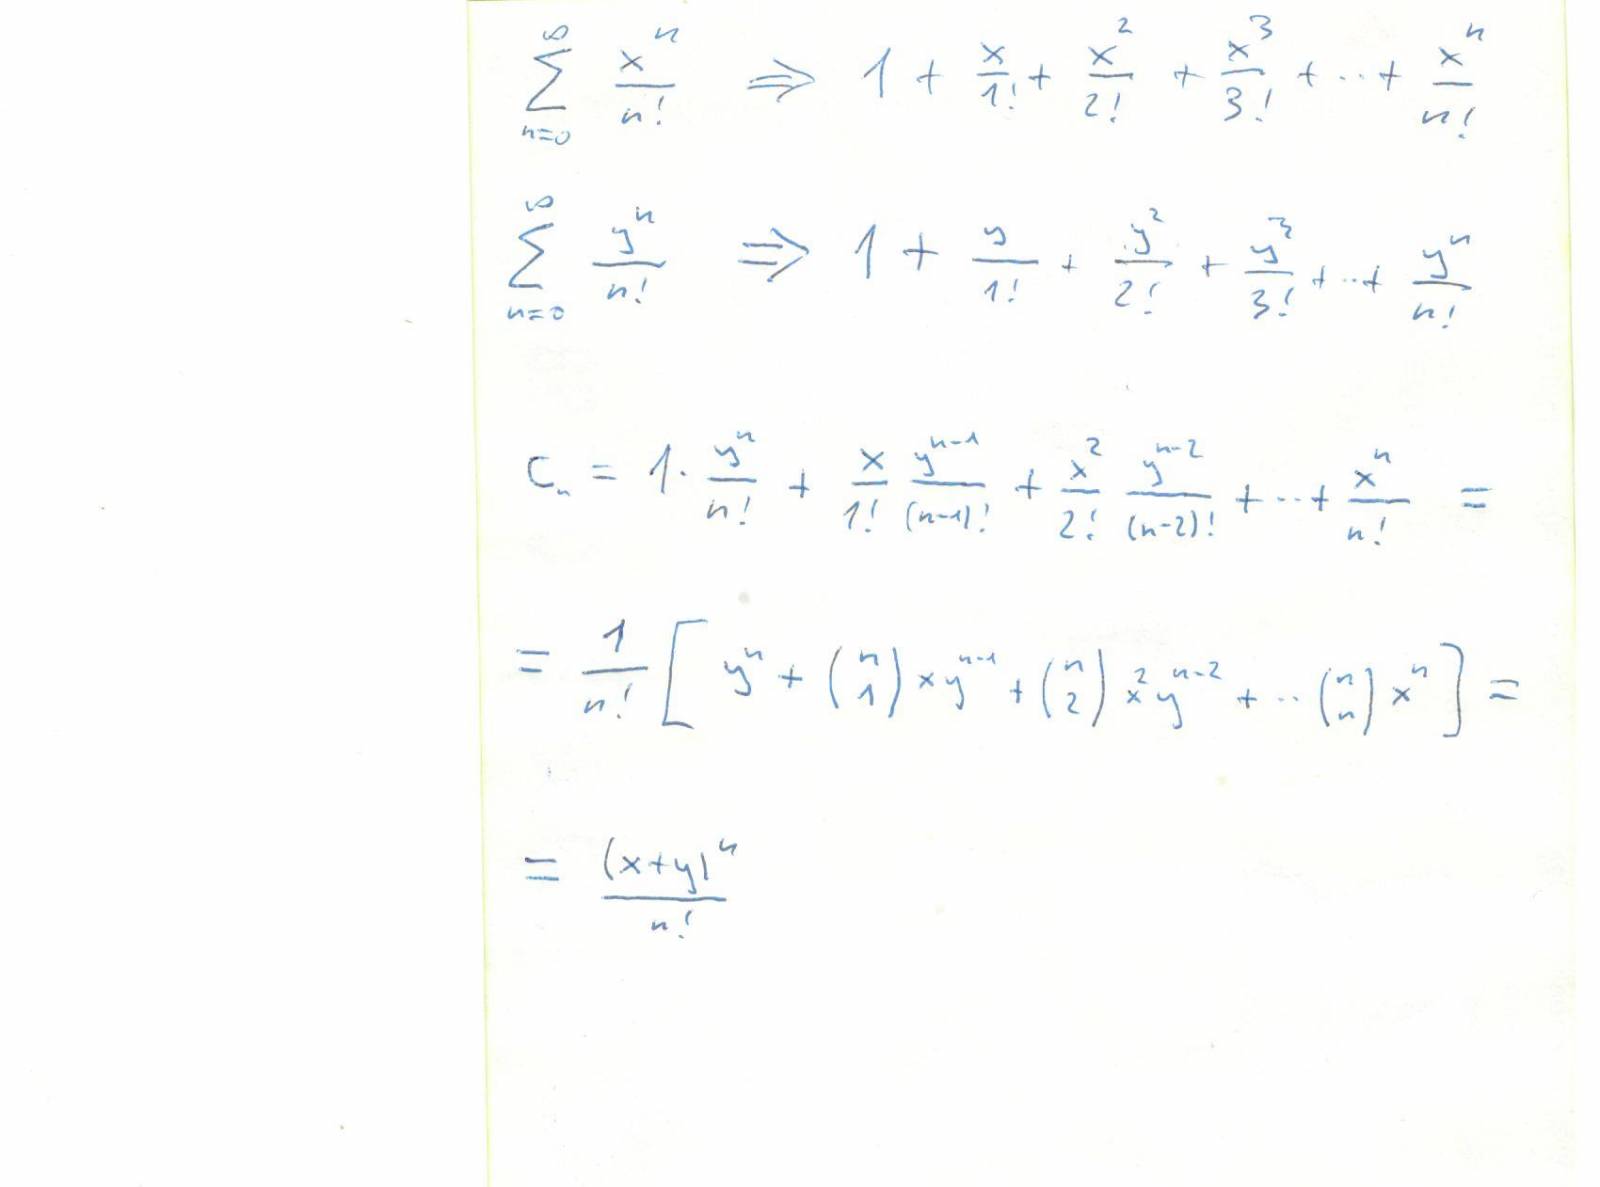 ∑_{n=0}^{∞} x^n/n! ⇒ 1 + x/1! + x^2/2! + x^3/3! + ... + x^n/n!
∑_{n=0}^{∞} y^n/n! ⇒ 1 + y/1! + y^2/2! + y^3/3! + ... + y^n/n!
C_n = 1 · y^n/n! + x/1! y^{n-1}/(n-1)! + x^2/2! y^{n-2}/(n-2)! + ... + x^n/n! =
= 1/n! [ y^n + (n 1) x y^{n-1} + (n 2) x^2 y^{n-2} + .. (n n) x^n ] =
= (x+y)^n/n!